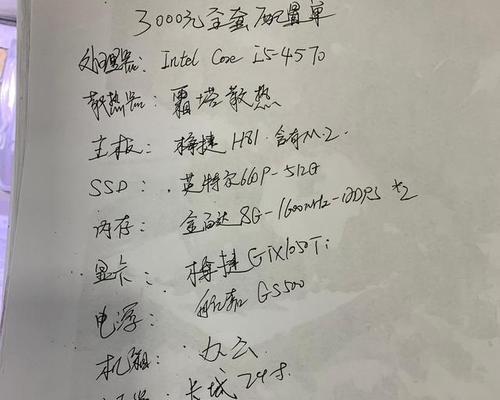 3000元全套配置单
处理器: Intel Core i5-4570
散热器: 霜塔散热
主板: 梅捷H81 含有M.2.
SSD: 英特尔660P-512G
内存: 金百达8G-1600MHz-DDR3 *2
显卡: 梅捷GTX1050Ti
电源: GS500
机箱: 办公
长城24寸